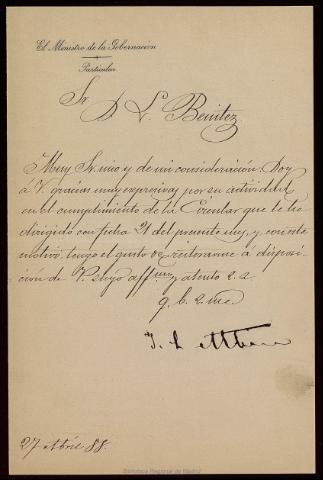 El Ministro de la Gobernacion
Particular
Sr. D. L. Benitez
Muy Sr. mio y de mi consideración: Doy
á V. gracias muy expresivas por su actividad
en el cumplimiento de la Circular que le he
dirigido con fecha 21 del presente mes, y con este
motivo tengo el gusto de reiterarme á disposi-
ción de V. suyo affmo. y atento s. s.
q. b. s. m.
27 Abril 88.
Biblioteca Regional de Madrid